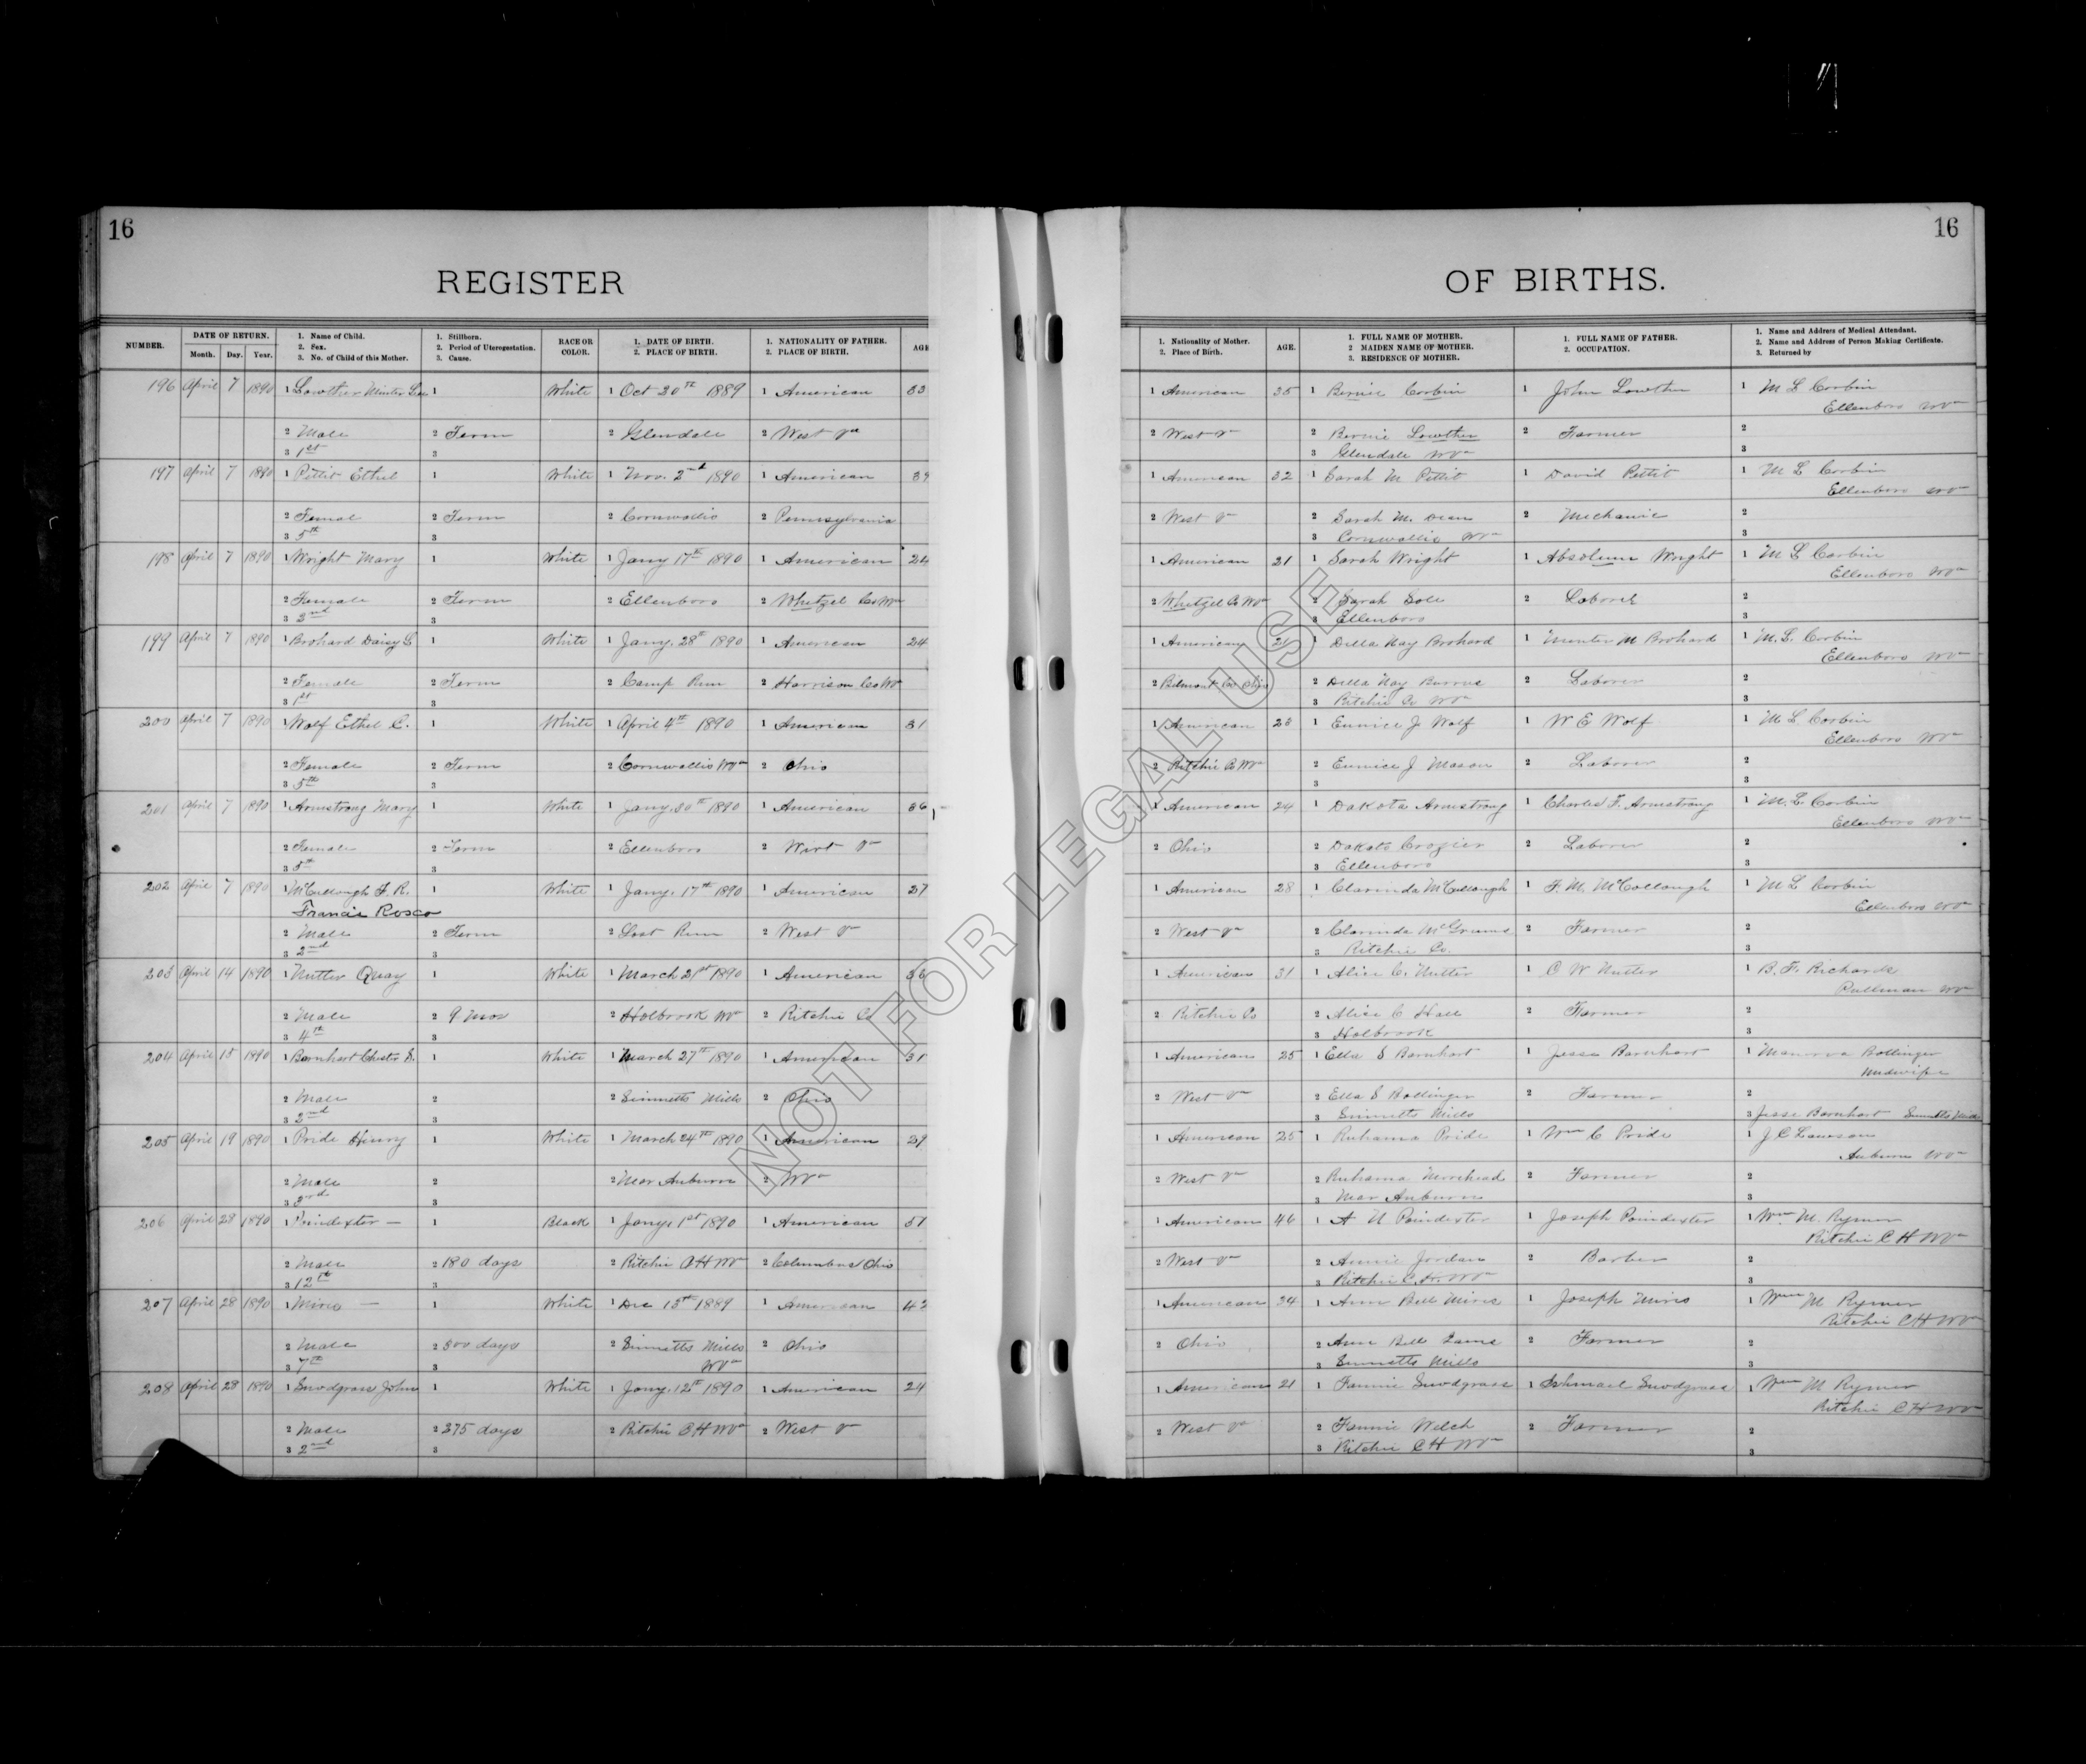 16
16
REGISTER
OF BIRTHS.
NUMBER.
DATE OF RETURN.
Month. Day. Year.
1. Name of Child.
2. Sex.
3. No. of Child of this Mother.
1. Stillborn.
2. Period of Uterogestation.
3. Cause.
RACE OR
COLOR.
1. DATE OF BIRTH.
2. PLACE OF BIRTH.
1. NATIONALITY OF FATHER.
2. PLACE OF BIRTH.
AGE
1. Nationality of Mother.
2. Place of Birth.
AGE.
1. FULL NAME OF MOTHER.
2 MAIDEN NAME OF MOTHER.
3. RESIDENCE OF MOTHER.
1. FULL NAME OF FATHER.
2. OCCUPATION.
1. Name and Address of Medical Attendant.
2. Name and Address of Person Making Certificate.
3. Returned by
196 April 7 1890 1 Lowther Minter 1 White 1 Oct 20th 1889 1 American 33 1 American 35 1 Bernie Corbin 1 John Lowther 1 M L Corbin
Ellenboro WVa
2 Male 2 Term 2 Glendale 2 West Va 2 West Va 2 Bernie Lowther 2 Farmer 2
3 1st 3 3 Glendale WVa 3
197 April 7 1890 1 Pettit Ethel 1 White 1 Nov. 2nd 1890 1 American 39 1 American 32 1 Sarah M Pettit 1 David Pettit 1 M L Corbin
Ellenboro WVa
2 Femal 2 Term 2 Cornwallis 2 Pennsylvania 2 West Va 2 Sarah M. Dean 2 Mechanic 2
3 5th 3 3 Cornwallis WVa 3
198 April 7 1890 1 Wright Mary 1 White 1 Jany 17th 1890 1 American 24 1 American 21 1 Sarah Wright 1 Absolum Wright 1 M L Corbin
Ellenboro WVa
2 Female 2 Term 2 Ellenboro 2 Whetzel Co WVa 2 Whetzel Co WVa 2 Sarah Sole 2 Laborer 2
3 2nd 3 3 Ellenboro 3
199 April 7 1890 1 Brohard Daisy 1 White 1 Jany. 28th 1890 1 American 24 1 American 21 1 Della May Brohard 1 Minter M Brohard 1 M. L. Corbin
Ellenboro WVa
2 Female 2 Term 2 Camp Run 2 Harrison Co WVa 2 Belmont Co Ohio 2 Della May 2 Laborer 2
3 1st 3 3 Ritchie Co WVa 3
200 April 7 1890 1 Wolf Ethel C. 1 White 1 April 4th 1890 1 American 31 1 American 1 Eunice J Wolf 1 W E Wolf 1 M L Corbin
Ellenboro WVa
2 Female 2 Term 2 Cornwallis WVa 2 Ohio 2 Ritchie Co WVa 2 Eunice J Mason 2 Laborer 2
3 5th 3 3 3
201 April 7 1890 1 Armstrong Mary 1 White 1 Jany. 30th 1890 1 American 36 1 American 24 1 Dakota Armstrong 1 Charles F. Armstrong 1 M. L. Corbin
Ellenboro WVa
2 Female 2 Term 2 Ellenboro 2 Wirt Va 2 Ohio 2 Dakota Crozier 2 Laborer 2
3 5th 3 3 Ellenboro 3
202 April 7 1890 1 McCullough F. R. 1 White 1 Jany. 17th 1890 1 American 27 1 American 28 1 Clarinda McCullough 1 F. M. McCollough 1 M L Corbin
Francis Rosco
Ellenboro WVa
2 Male 2 Term 2 Lost Run 2 West Va 2 West Va 2 Clarinda 2 Farmer 2
3 2nd 3 3 Ritchie Co. 3
203 April 14 1890 1 Nutter Quay 1 White 1 March 21st 1890 1 American 36 1 American 31 1 Alice C. Nutter 1 O W Nutter 1 B. F. Richards
Pullman WVa
2 Male 2 9 Mos 2 Holbrook WVa 2 Ritchie Co 2 Ritchie Co 2 Alice C Hall 2 Farmer 2
3 4th 3 3 Holbrook 3
204 April 15 1890 1 Barnhart Chester 1 White 1 March 27th 1890 1 American 31 1 American 25 1 Ella S Barnhart 1 Jesse Barnhart 1 Bollinger
Midwife
2 Male 2 2 Sinnetts Mills 2 Ohio 2 West Va 2 Ella S Bollinger 2 Farmer 2
3 2nd 3 3 Sinnetts Mills 3 Jesse Barnhart Sinnetts Mills
205 April 19 1890 1 Pride Henry 1 White 1 March 24th 1890 1 American 29 1 American 25 1 Ruhama Pride 1 Wm C Pride 1 J C Lawson
Auburn WVa
2 Male 2 2 Near Auburn 2 WVa 2 West Va 2 Ruhama Morehead 2 Farmer 2
3 3rd 3 3 Near Auburn 3
206 April 28 1890 1 Poindexter — 1 Black 1 Jany. 1st 1890 1 American 51 1 American 46 1 A Poindexter 1 Joseph Poindexter 1 Wm. M. Rymer
Ritchie C H WVa
2 Male 2 180 days 2 Ritchie C H WVa 2 Columbus Ohio 2 West Va 2 Annie Jordan 2 Barber 2
3 12th 3 3 Ritchie C. H. WVa 3
207 April 28 1890 1 — 1 White 1 Dec 15th 1889 1 American 1 American 34 1 Ann Bell 1 Joseph 1 Wm M Rymer
Ritchie C H WVa
2 Male 2 300 days 2 Sinnetts Mills 2 Ohio 2 Ohio 2 Ann Bell 2 Farmer 2
3 7th 3 WVa 3 Sinnetts Mills 3
208 April 28 1890 1 Snodgrass John 1 White 1 Jany. 12th 1890 1 American 24 1 American 21 1 Fannie Snodgrass 1 Ishmael Snodgrass 1 Wm M Rymer
Ritchie C H WVa
2 Male 2 275 days 2 Ritchie C H WVa 2 West Va 2 West Va 2 Fannie Welch 2 Farmer 2
3 2nd 3 3 Ritchie C H WVa 3
NOT FOR LEGAL USE